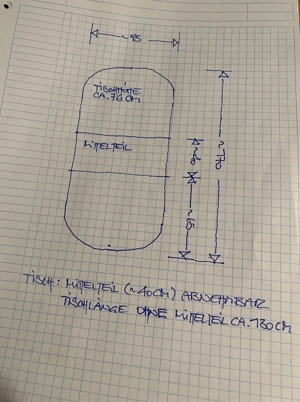 ~85
TISCHHÖHE
CA. 76CM
MITTELTEIL
~40
~170
~65
TISCH: MITTELTEIL (~40CM) ABNEHMBAR
TISCHLÄNGE OHNE MITTELTEIL CA. 130CM